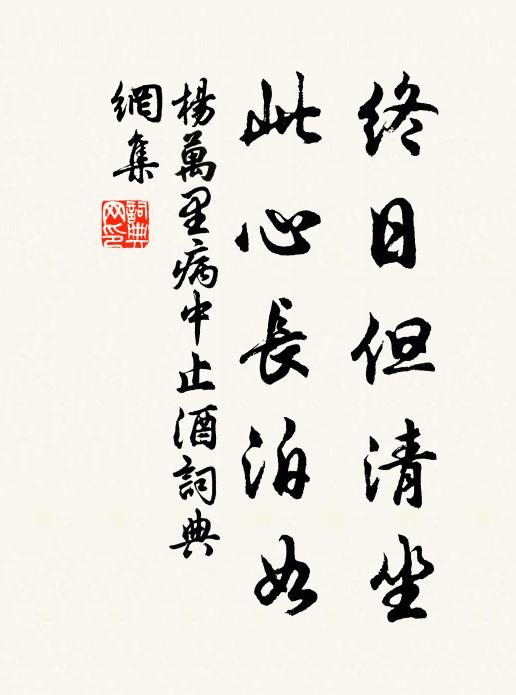 終日但清坐
此心長泊如
楊萬里病中止酒詞典
網集
詞典網印